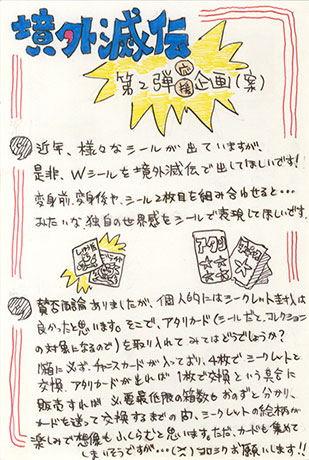 境外滅伝
第2弾 応援 企画(案)
近年、様々なシールが出ていますが、
是非、Wシールを境外滅伝で出してほしいです!
変身前、変身後や、シール2枚目を組み合わせると…
みたいな独自の世界感をシールで表現してほしいです。
アタリ
賛否両論ありましたが、個人的にはシークレット封入は
良かったと思います。そこで、アタリカード(シールだと、コレクション
の対象になるので)を取り入れてみてはどうでしょうか?
1箱に必ず、チャンスカードが入っており、4枚でシークレットと
交換。アタリカードが出れば1枚で交換という具合に
販売すれば必要最低限の箱数もおのずと分かり、
カードを送って交換するまでの内、シークレットの絵柄が
楽しみで想像もふくらむと思います。ただ、カードも集めて
しまいそうですが…ヨロシクお願いします!!